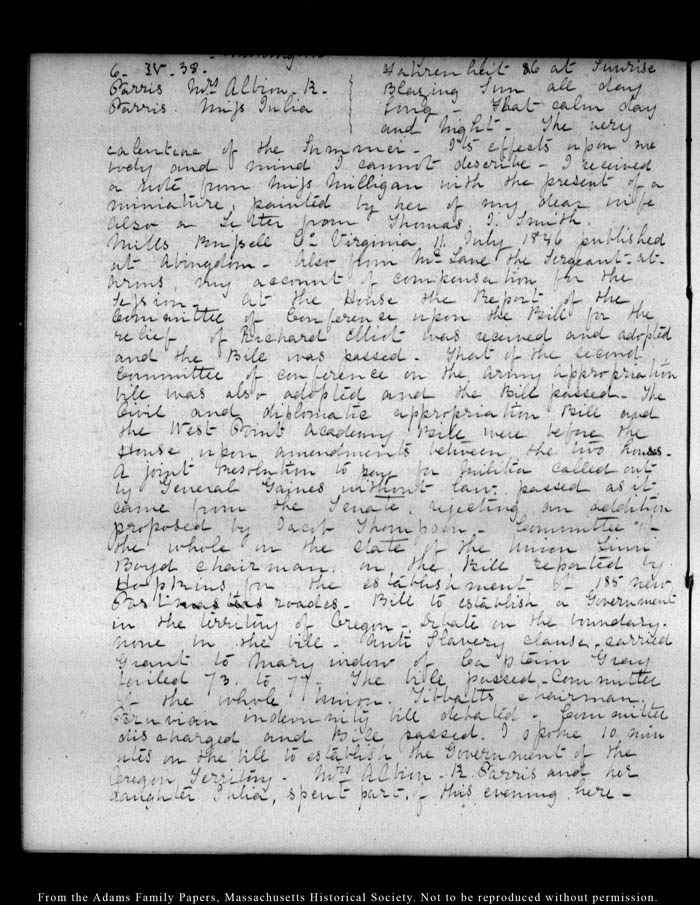 Washington
6. IV. 38.
Parris Mrs Albion. K.
Parris. Miss Julia
Fahrenheit 86 at Sunrise
Blazing Sun all day
long — that calm day
and night — The very
calenture of the Summer. Its effects upon my
body and mind I cannot describe — I received
a note from Miss Milligan with the present of a
miniature, painted by her of my dear wife
also a Letter from Thomas J. Smith.
Mills Russell Co. Virginia 11. July 1846 published
at Abingdon — Also from McLane the Sergeant-at-
arms, my account of compensation for the
Session — At the House the Report of the
Committee of Conference upon the Bill for the
relief of Richard Elliot was received and adopted
and the Bill was passed — That of the second
Committee of conference on the army appropriation
bill was also adopted and the Bill passed — The
Civil and diplomatic appropriation Bill and
the West Point Academy Bill were before the
House upon amendments between the two houses.
A joint resolution to pay for militia called out
by General Gaines without law, passed as it
came from the Senate, rejecting an addition
proposed by Jacob Thompson — Committee of
the whole on the state of the Union Linn
Boyd chairman, on the Bill reported by
Hopkins for the establishment of 185 new
Post roades — Bill to establish a Government
in the territory of Oregon — debate on the boundary.
none in the bill — Anti Slavery clause, carried
Grant to Mary widow of Captain Gray
failed 73. to 77. The bill passed — Committee
of the whole Union. Tibbatts chairman.
Peruvian indemnity bill debated — Committee
discharged and Bill passed. I spoke 10 min
utes on the bill to establish the Government of the
Oregon Territory — Mrs Albion. K. Parris and her
daughter Julia, spent part of this evening here —
From the Adams Family Papers, Massachusetts Historical Society. Not to be reproduced without permission.